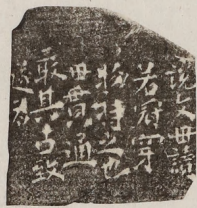 說文毌讀
若冠穿
物持之也
毌貫通
取其古致
遂為